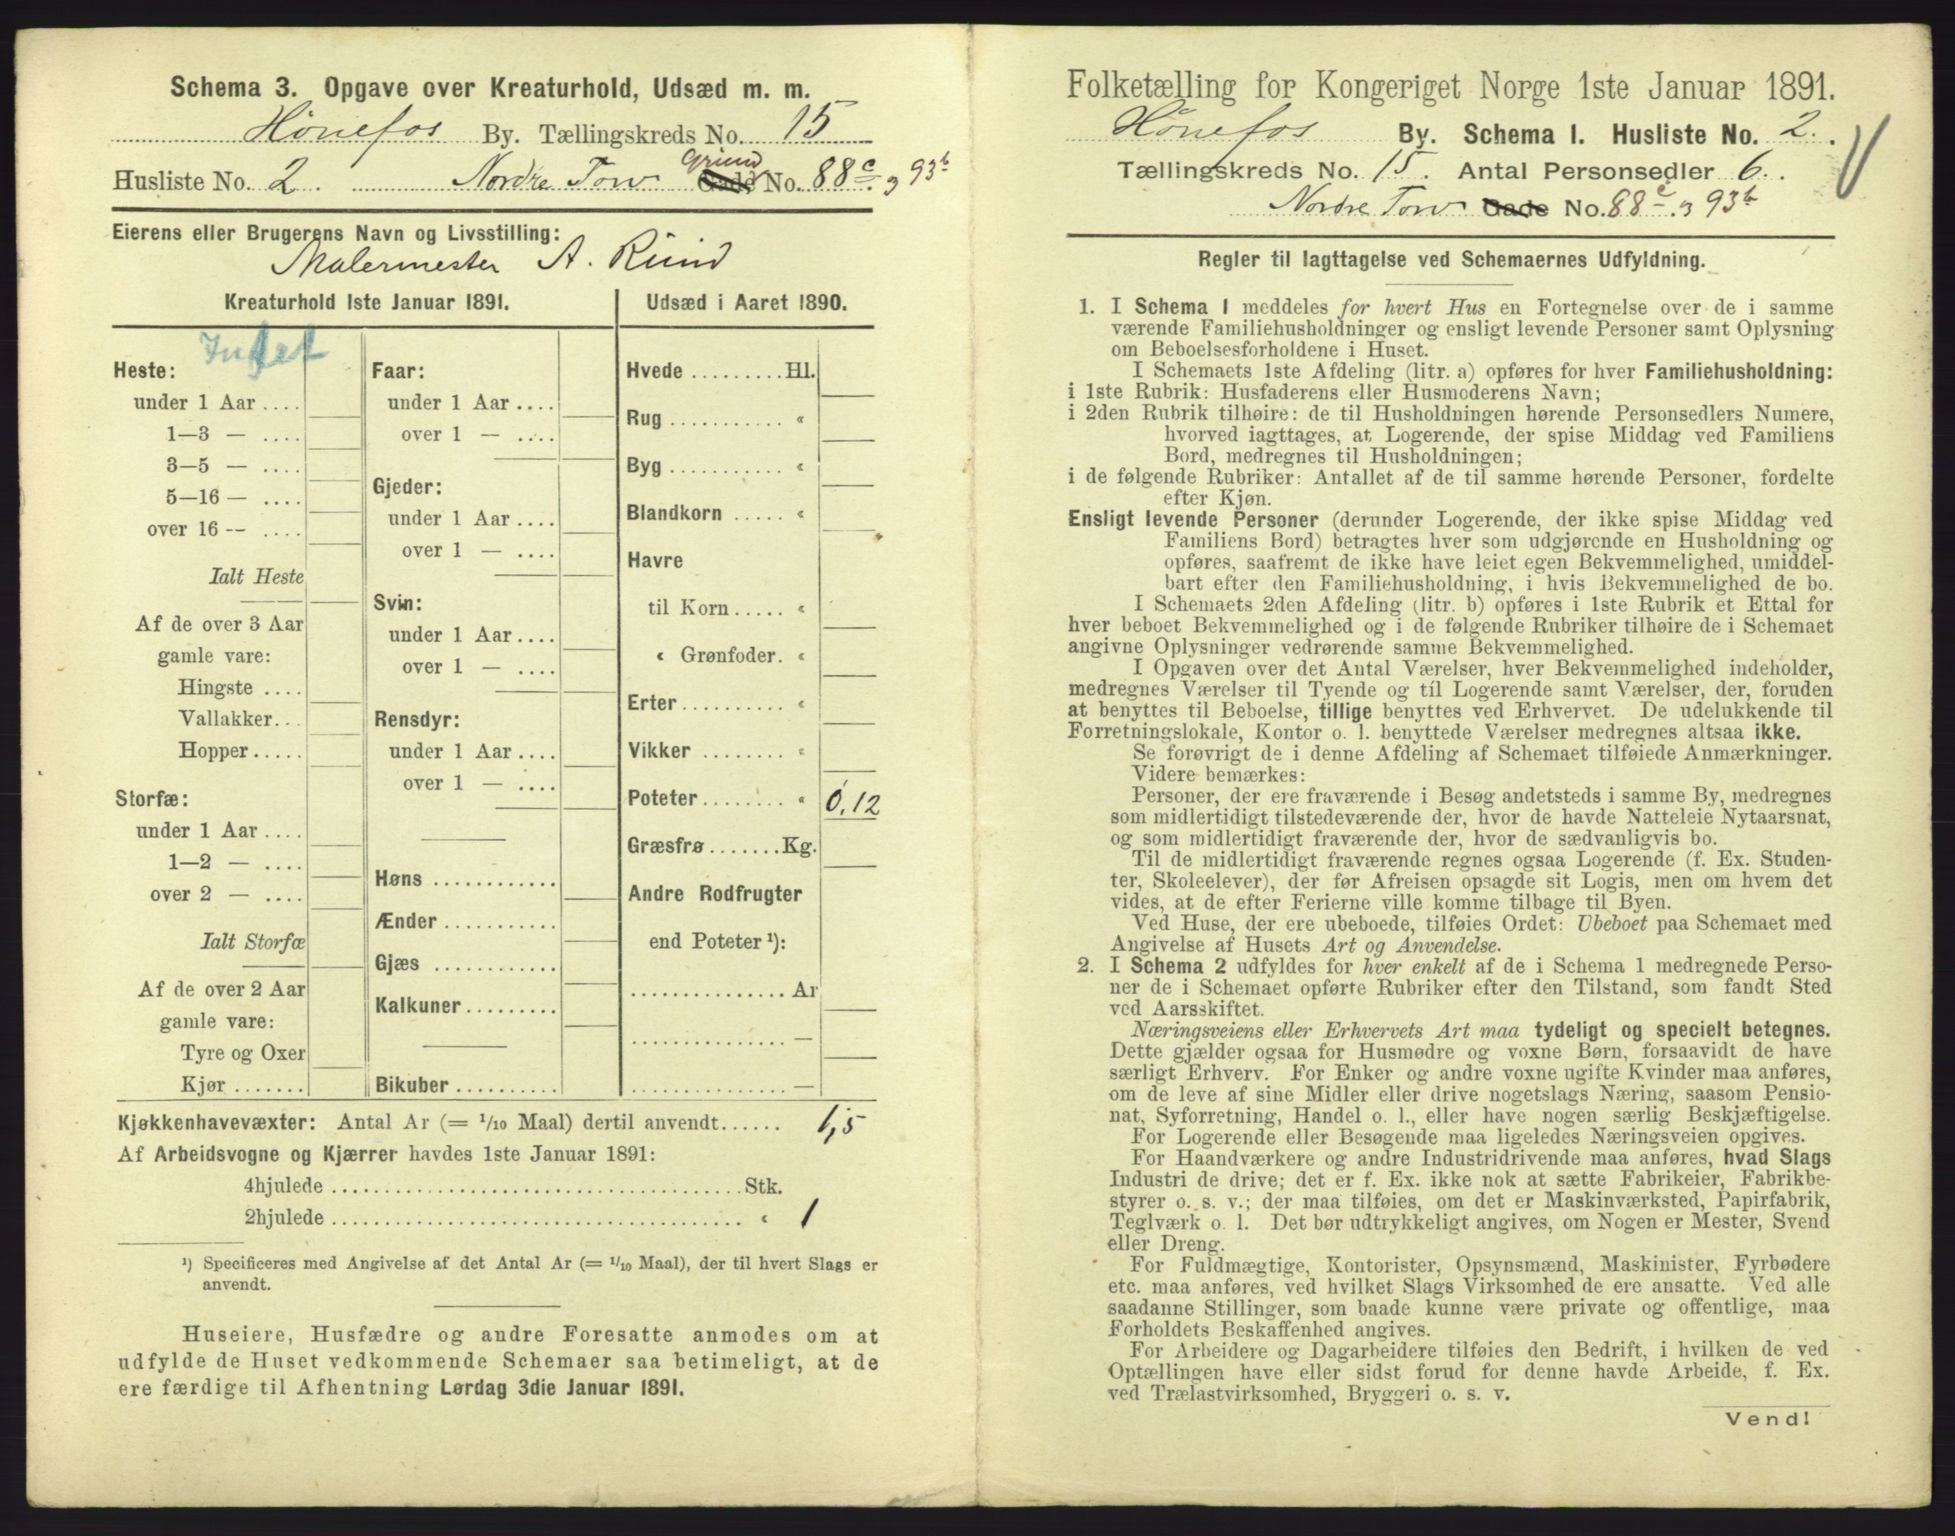 Schema 3. Opgave over Kreaturhold, Udsæd m. m.
Hønefos By. Tællingskreds No. 15
Husliste No. 2. Nordre Torv Grund Gade No. 88c. 93b
Eierens eller Brugerens Navn og Livsstilling:
Malermester A. Rund
Kreaturhold 1ste Januar 1891.
Intet
Heste:
under 1 Aar ....
1—3 — ....
3—5 — ....
5—16 — ....
over 16 -- ....
Ialt Heste
Af de over 3 Aar
gamle vare:
Hingste ....
Vallakker...
Hopper.....
Storfæ:
under 1 Aar ....
1—2 — ....
over 2 — ....
Ialt Storfæ
Af de over 2 Aar
gamle vare:
Tyre og Oxer
Kjør .......
Faar:
under 1 Aar ....
over 1 — ....
Gjeder:
under 1 Aar ....
over 1 — ....
Svin:
under 1 Aar ....
over 1 — ....
Rensdyr:
under 1 Aar ....
over 1 — ....
Høns ............
Ænder ...........
Gjæs ............
Kalkuner.........
Bikuber ..........
Udsæd i Aaret 1890.
Hvede .........Hl.
Rug ........... «
Byg ........... «
Blandkorn ..... «
Havre
til Korn ..... «
« Grønfoder. «
Erter.......... «
Vikker ........ «
Poteter........ « 0,12
Græsfrø .......Kg.
Andre Rodfrugter
end Poteter ¹):
............... Ar
............... —
............... —
Kjøkkenhavevæxter: Antal Ar (= 1/10 Maal) dertil anvendt...... 1,5
Af Arbeidsvogne og Kjærrer havdes 1ste Januar 1891:
4hjulede ....................................... Stk.
2hjulede ....................................... « 1
¹) Specificeres med Angivelse af det Antal Ar (= 1/10 Maal), der til hvert Slags er
anvendt.
Huseiere, Husfædre og andre Foresatte anmodes om at
udfylde de Huset vedkommende Schemaer saa betimeligt, at de
ere færdige til Afhentning Lørdag 3die Januar 1891.
Folketælling for Kongeriget Norge 1ste Januar 1891.
Hønefos By. Schema 1. Husliste No. 2.
Tællingskreds No. 15. Antal Personsedler 6.
Nordre Torv Gade No. 88c. 93b
Regler til Iagttagelse ved Schemaernes Udfyldning.
1. I Schema 1 meddeles for hvert Hus en Fortegnelse over de i samme
værende Familiehusholdninger og ensligt levende Personer samt Oplysning
om Beboelsesforholdene i Huset.
I Schemaets 1ste Afdeling (litr. a) opføres for hver Familiehusholdning:
i 1ste Rubrik: Husfaderens eller Husmoderens Navn;
i 2den Rubrik tilhøire: de til Husholdningen hørende Personsedlers Numere,
hvorved iagttages, at Logerende, der spise Middag ved Familiens
Bord, medregnes til Husholdningen;
i de følgende Rubriker: Antallet af de til samme hørende Personer, fordelte
efter Kjøn.
Ensligt levende Personer (derunder Logerende, der ikke spise Middag ved
Familiens Bord) betragtes hver som udgjørende en Husholdning og
opføres, saafremt de ikke have leiet egen Bekvemmelighed, umiddel-
bart efter den Familiehusholdning, i hvis Bekvemmelighed de bo.
I Schemaets 2den Afdeling (litr. b) opføres i 1ste Rubrik et Ettal for
hver beboet Bekvemmelighed og i de følgende Rubriker tilhøire de i Schemaet
angivne Oplysninger vedrørende samme Bekvemmelighed.
I Opgaven over det Antal Værelser, hver Bekvemmelighed indeholder,
medregnes Værelser til Tyende og til Logerende samt Værelser, der, foruden
at benyttes til Beboelse, tillige benyttes ved Erhvervet. De udelukkende til
Forretningslokale, Kontor o. l. benyttede Værelser medregnes altsaa ikke.
Se forøvrigt de i denne Afdeling af Schemaet tilføiede Anmærkninger.
Videre bemærkes:
Personer, der ere fraværende i Besøg andetsteds i samme By, medregnes
som midlertidigt tilstedeværende der, hvor de havde Natteleie Nytaarsnat,
og som midlertidigt fraværende der, hvor de sædvanligvis bo.
Til de midlertidigt fraværende regnes ogsaa Logerende (f. Ex. Studen-
ter, Skoleelever), der før Afreisen opsagde sit Logis, men om hvem det
vides, at de efter Ferierne ville komme tilbage til Byen.
Ved Huse, der ere ubeboede, tilføies Ordet: Ubeboet paa Schemaet med
Angivelse af Husets Art og Anvendelse.
2. I Schema 2 udfyldes for hver enkelt af de i Schema 1 medregnede Perso-
ner de i Schemaet opførte Rubriker efter den Tilstand, som fandt Sted
ved Aarsskiftet.
Næringsveiens eller Erhvervets Art maa tydeligt og specielt betegnes.
Dette gjælder ogsaa for Husmødre og voxne Børn, forsaavidt de have
særligt Erhverv. For Enker og andre voxne ugifte Kvinder maa anføres,
om de leve af sine Midler eller drive nogetslags Næring, saasom Pensio-
nat, Syforretning, Handel o. l., eller have nogen særlig Beskjæftigelse.
For Logerende eller Besøgende maa ligeledes Næringsveien opgives.
For Haandværkere og andre Industridrivende maa anføres, hvad Slags
Industri de drive; det er f. Ex. ikke nok at sætte Fabrikeier, Fabrikbe-
styrer o. s. v.; der maa tilføies, om det er Maskinværksted, Papirfabrik,
Teglværk o. l. Det bør udtrykkeligt angives, om Nogen er Mester, Svend
eller Dreng.
For Fuldmægtige, Kontorister, Opsynsmænd, Maskinister, Fyrbødere
etc. maa anføres, ved hvilket Slags Virksomhed de ere ansatte. Ved alle
saadanne Stillinger, som baade kunne være private og offentlige, maa
Forholdets Beskaffenhed angives.
For Arbeidere og Dagarbeidere tilføies den Bedrift, i hvilken de ved
Optællingen have eller sidst forud for denne havde Arbeide, f. Ex.
ved Trælastvirksomhed, Bryggeri o. s. v.
Vend!